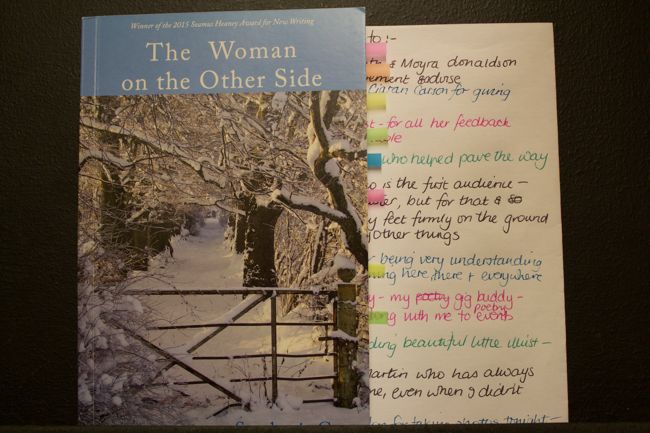 Winner of the 2015 Seamus Heaney Award for New Writing
The Woman
on the Other Side
to :-
& Moyra donaldson
Ciaran Carson for giving
- for all her feedback
who helped pave the way
is the first audience -
but for that &
feet firmly on the ground
other things
being very understanding
here, there + everywhere
- my poetry gig buddy -
poetry
with me to events
beautiful little illust -
Martin who has always
me, even when I didn't